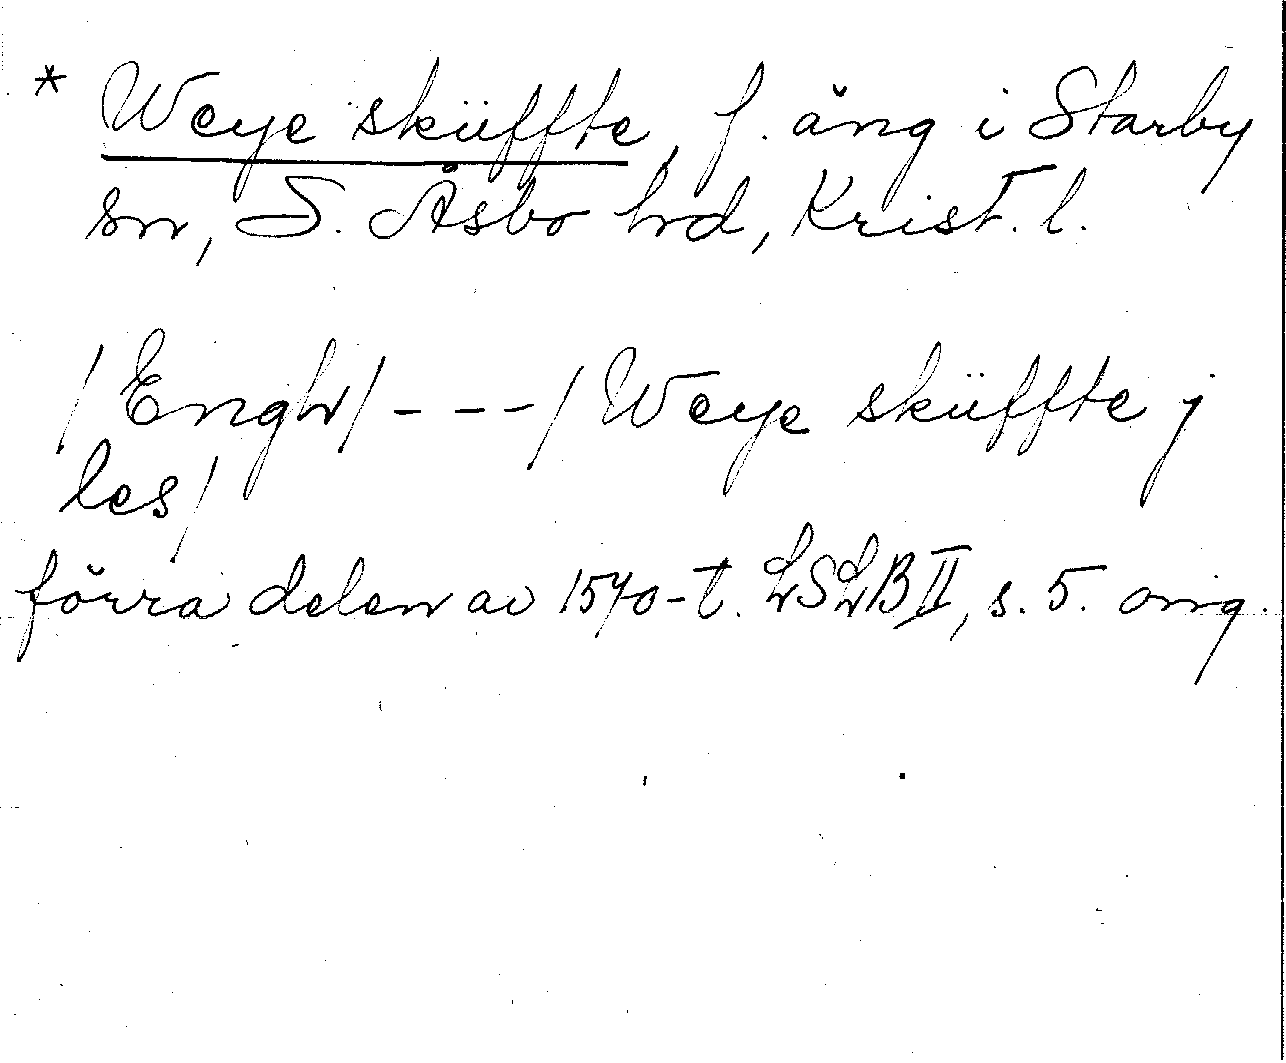 * Weye sküffte, f. äng i Starby
sn, S. Åsbo hd, Krist. l.
/Engh/ - - - / Weye sküffte j
les/
förra delen av 1570-t. LSLB II, s. 5. orig.